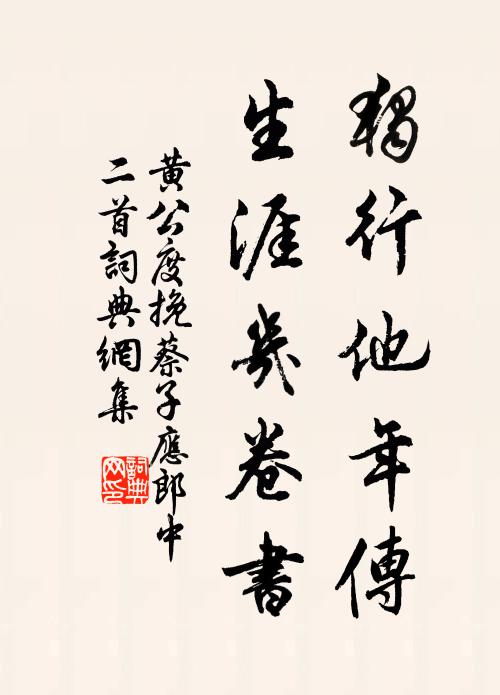 獨行他年傳
生涯幾卷書
黃公度挽蔡子應郎中
二首詞典網集
詞典
网印